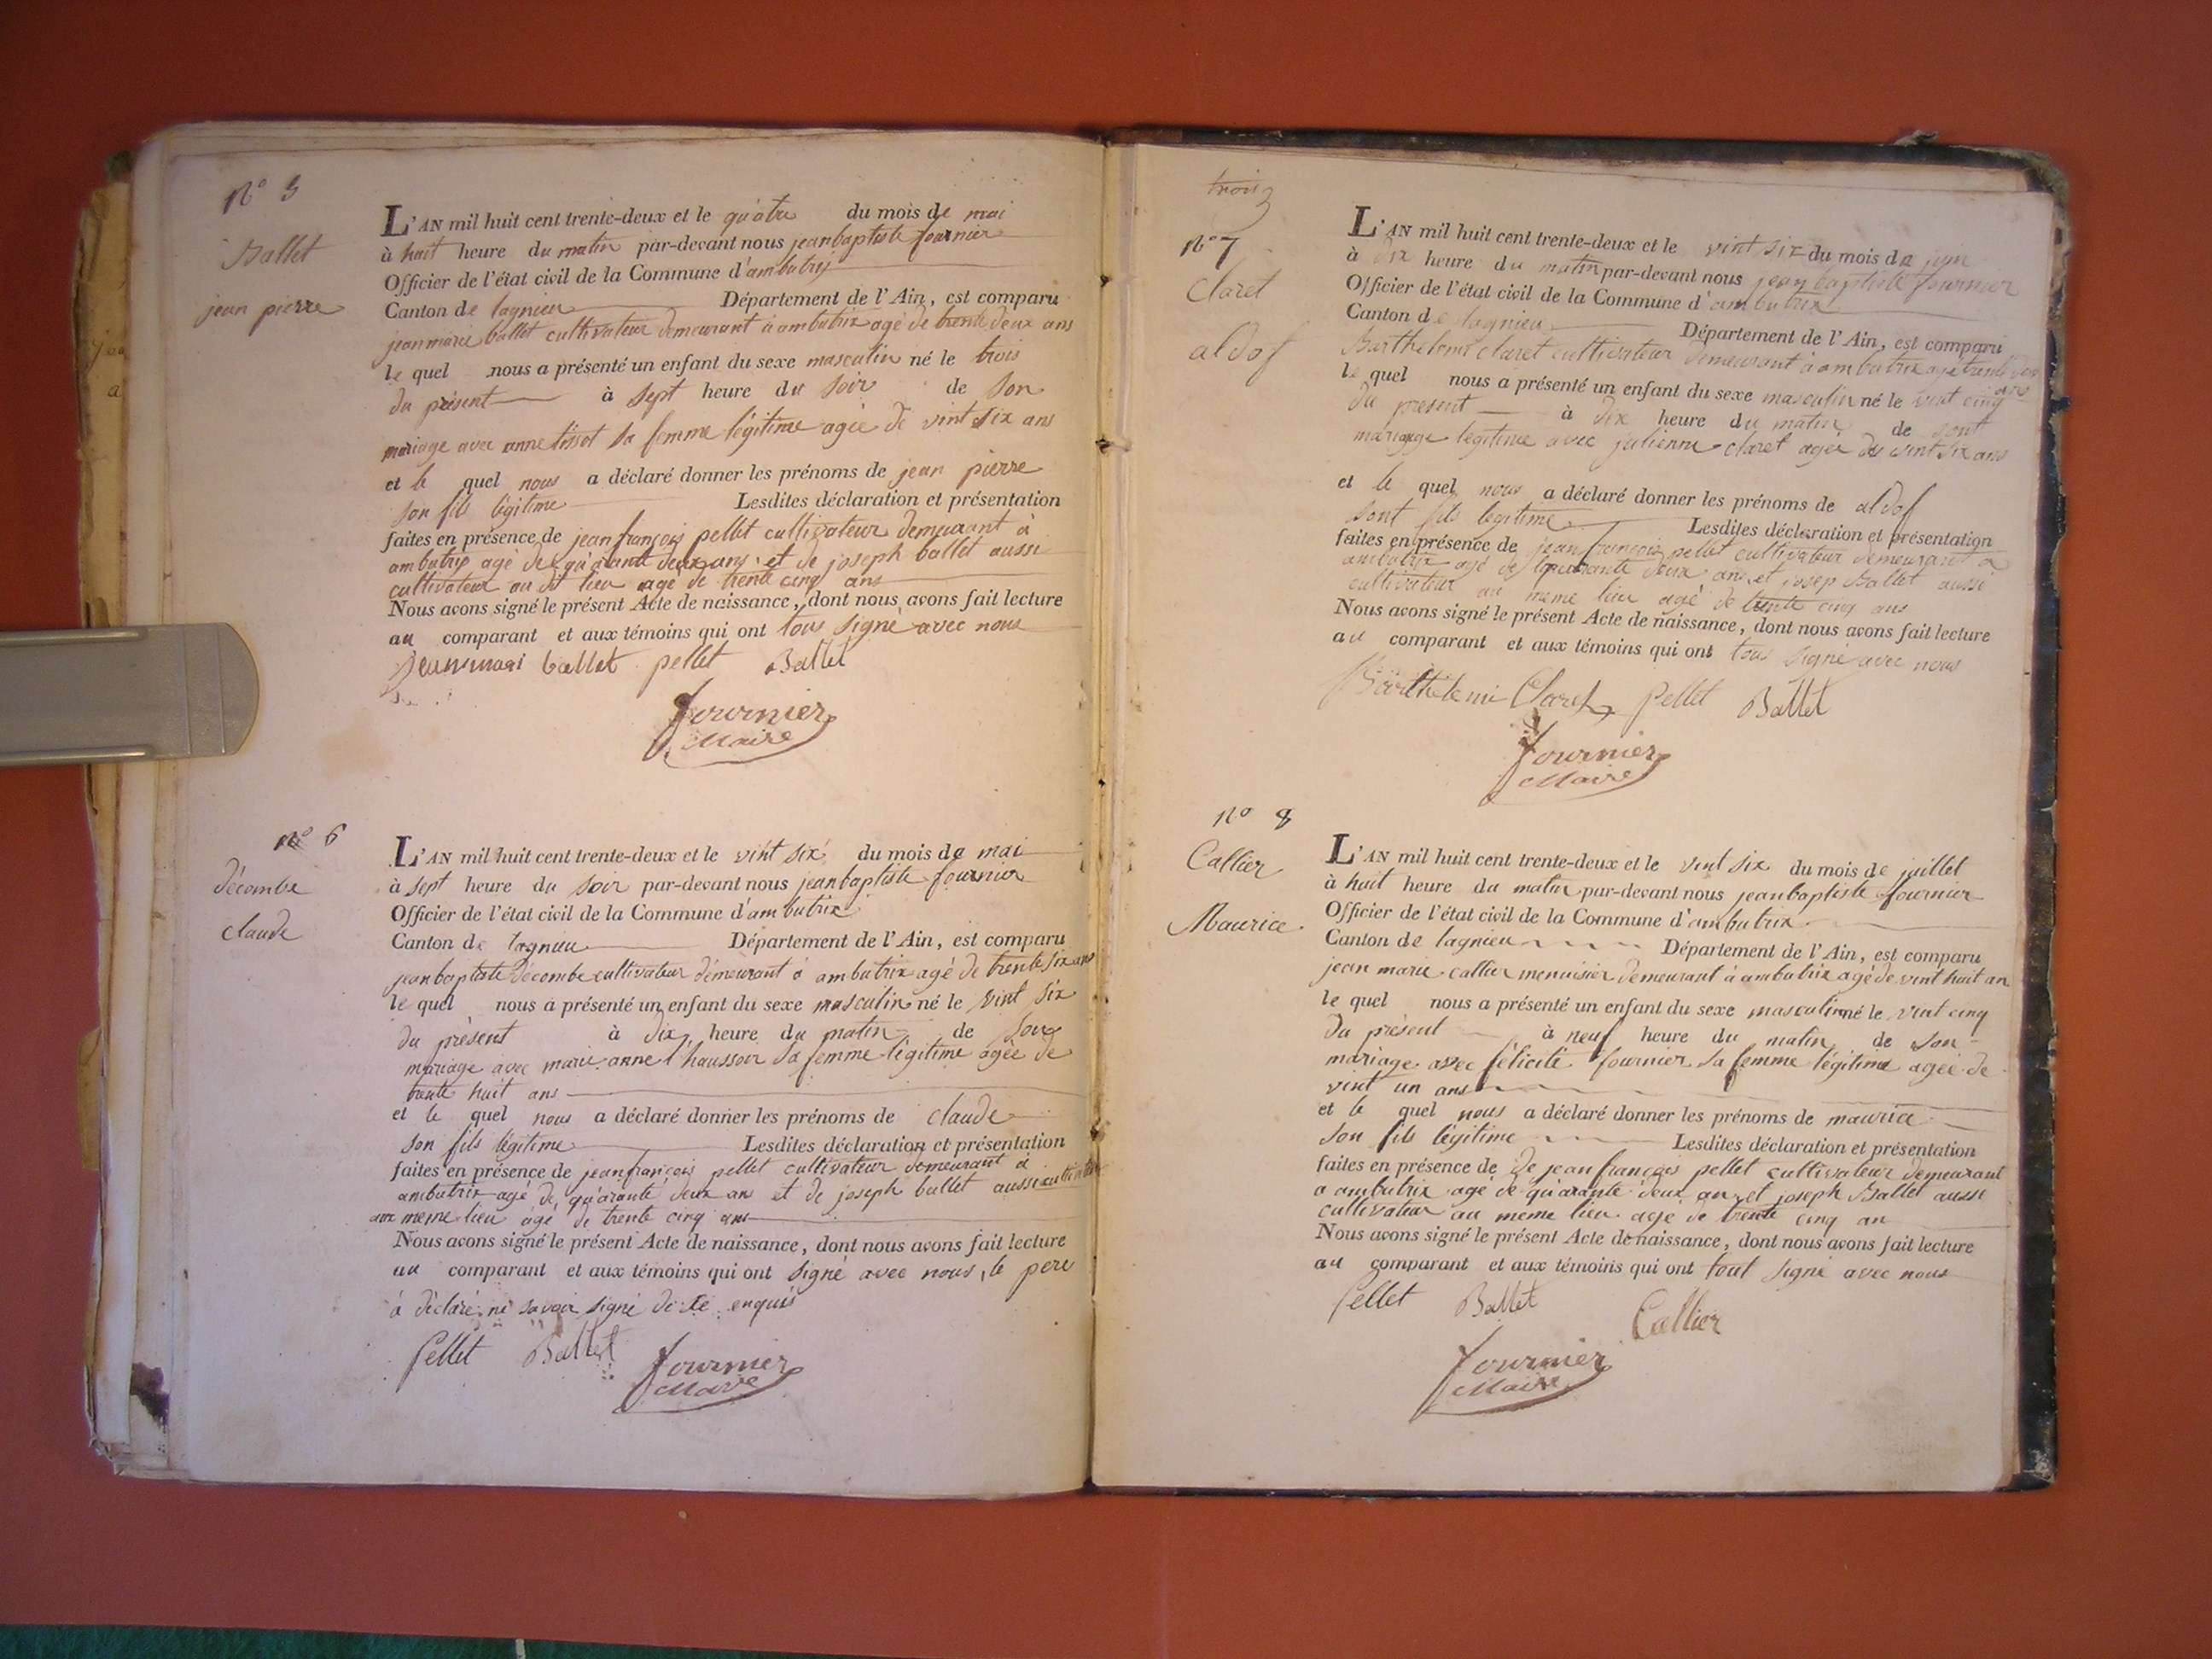 N° 5
Ballet
jean pierre
L'AN mil huit cent trente-deux et le quatre du mois de mai
à huit heure du matin par-devant nous jean baptiste fournier
Officier de l'état civil de la Commune d'ambutrix
Canton de lagnieu Département de l'Ain, est comparu
jean marie ballet cultivateur demeurant à ambutrix agé de trente deux ans
le quel nous a présenté un enfant du sexe masculin né le trois
du présent à sept heure du soir de son
mariage avec anne tissot sa femme légitime agée de vint six ans
et le quel nous a déclaré donner les prénoms de jean pierre
son fils légitime Lesdites déclaration et présentation
faites en présence de jean françois pellet cultivateur demeurant à
ambutrix agé de quarante deux ans et de joseph ballet aussi
cultivateur au dit lieu agé de trente cinq ans
Nous avons signé le présent Acte de naissance, dont nous avons fait lecture
au comparant et aux témoins qui ont tous signé avec nous
Jean mari ballet pellet Ballet
fournier
Maire
N° 6
décombe
claude
L'AN mil huit cent trente-deux et le vint six du mois de mai
à sept heure du soir par-devant nous jean baptiste fournier
Officier de l'état civil de la Commune d'ambutrix
Canton de lagnieu Département de l'Ain, est comparu
jean baptiste decombe cultivateur demeurant à ambutrix agé de trente six ans
le quel nous a présenté un enfant du sexe masculin né le vint six
du présent à dix heure du matin de son
mariage avec marie anne l'haussoir sa femme légitime agée de
trente huit ans
et le quel nous a déclaré donner les prénoms de claude
son fils légitime Lesdites déclaration et présentation
faites en présence de jean françois pellet cultivateur demeurant à
ambutrix agé de quarante deux ans et de joseph ballet aussi cultivateur
au meme lieu agé de trente cinq ans
Nous avons signé le présent Acte de naissance, dont nous avons fait lecture
au comparant et aux témoins qui ont signé avec nous, le pere
à déclaré ne savoir signé de ce enquis
Pellet Ballet fournier
Maire
trois
N° 7
Claret
aldof
L'AN mil huit cent trente-deux et le vint six du mois de juin
à dix heure du matin par-devant nous jean baptiste fournier
Officier de l'état civil de la Commune d'ambutrix
Canton de lagnieu Département de l'Ain, est comparu
Barthelemi claret cultivateur demeurant à ambutrix agé trente ans
le quel nous a présenté un enfant du sexe masculin né le vint cinq
du present à dix heure du matin de sont
mariage légitime avec julienne claret agée de vint six ans
et le quel nous a déclaré donner les prénoms de aldof
sont fils légitime Lesdites déclaration et présentation
faites en présence de jean françois pellet cultivateur demeurant à
ambutrix agé de quarante deux ans et josep Ballet aussi
cultivateur au meme lieu agé de trente cinq ans
Nous avons signé le présent Acte de naissance, dont nous avons fait lecture
au comparant et aux témoins qui ont tous signé avec nous
Barthelemi Claret Pellet Ballet
fournier
Maire
N° 8
Callier
Maurice
L'AN mil huit cent trente-deux et le vint six du mois de juillet
à huit heure du matin par-devant nous jean baptiste fournier
Officier de l'état civil de la Commune d'ambutrix
Canton de lagnieu Département de l'Ain, est comparu
jean marie callier menuisier demeurant à ambutrix agé de vint huit an
le quel nous a présenté un enfant du sexe masculin né le vint cinq
du présent à neuf heure du matin de son
mariage avec félicité fournier sa femme légitime agée de
vint un ans
et le quel nous a déclaré donner les prénoms de maurice
son fils légitime Lesdites déclaration et présentation
faites en présence de de jean françois pellet cultivateur demeurant
a ambutrix agé de quarante deux an et joseph Ballet aussi
cultivateur au meme lieu agé de trente cinq an
Nous avons signé le présent Acte de naissance, dont nous avons fait lecture
au comparant et aux témoins qui ont tout signé avec nous
Pellet Ballet Callier
fournier
Maire